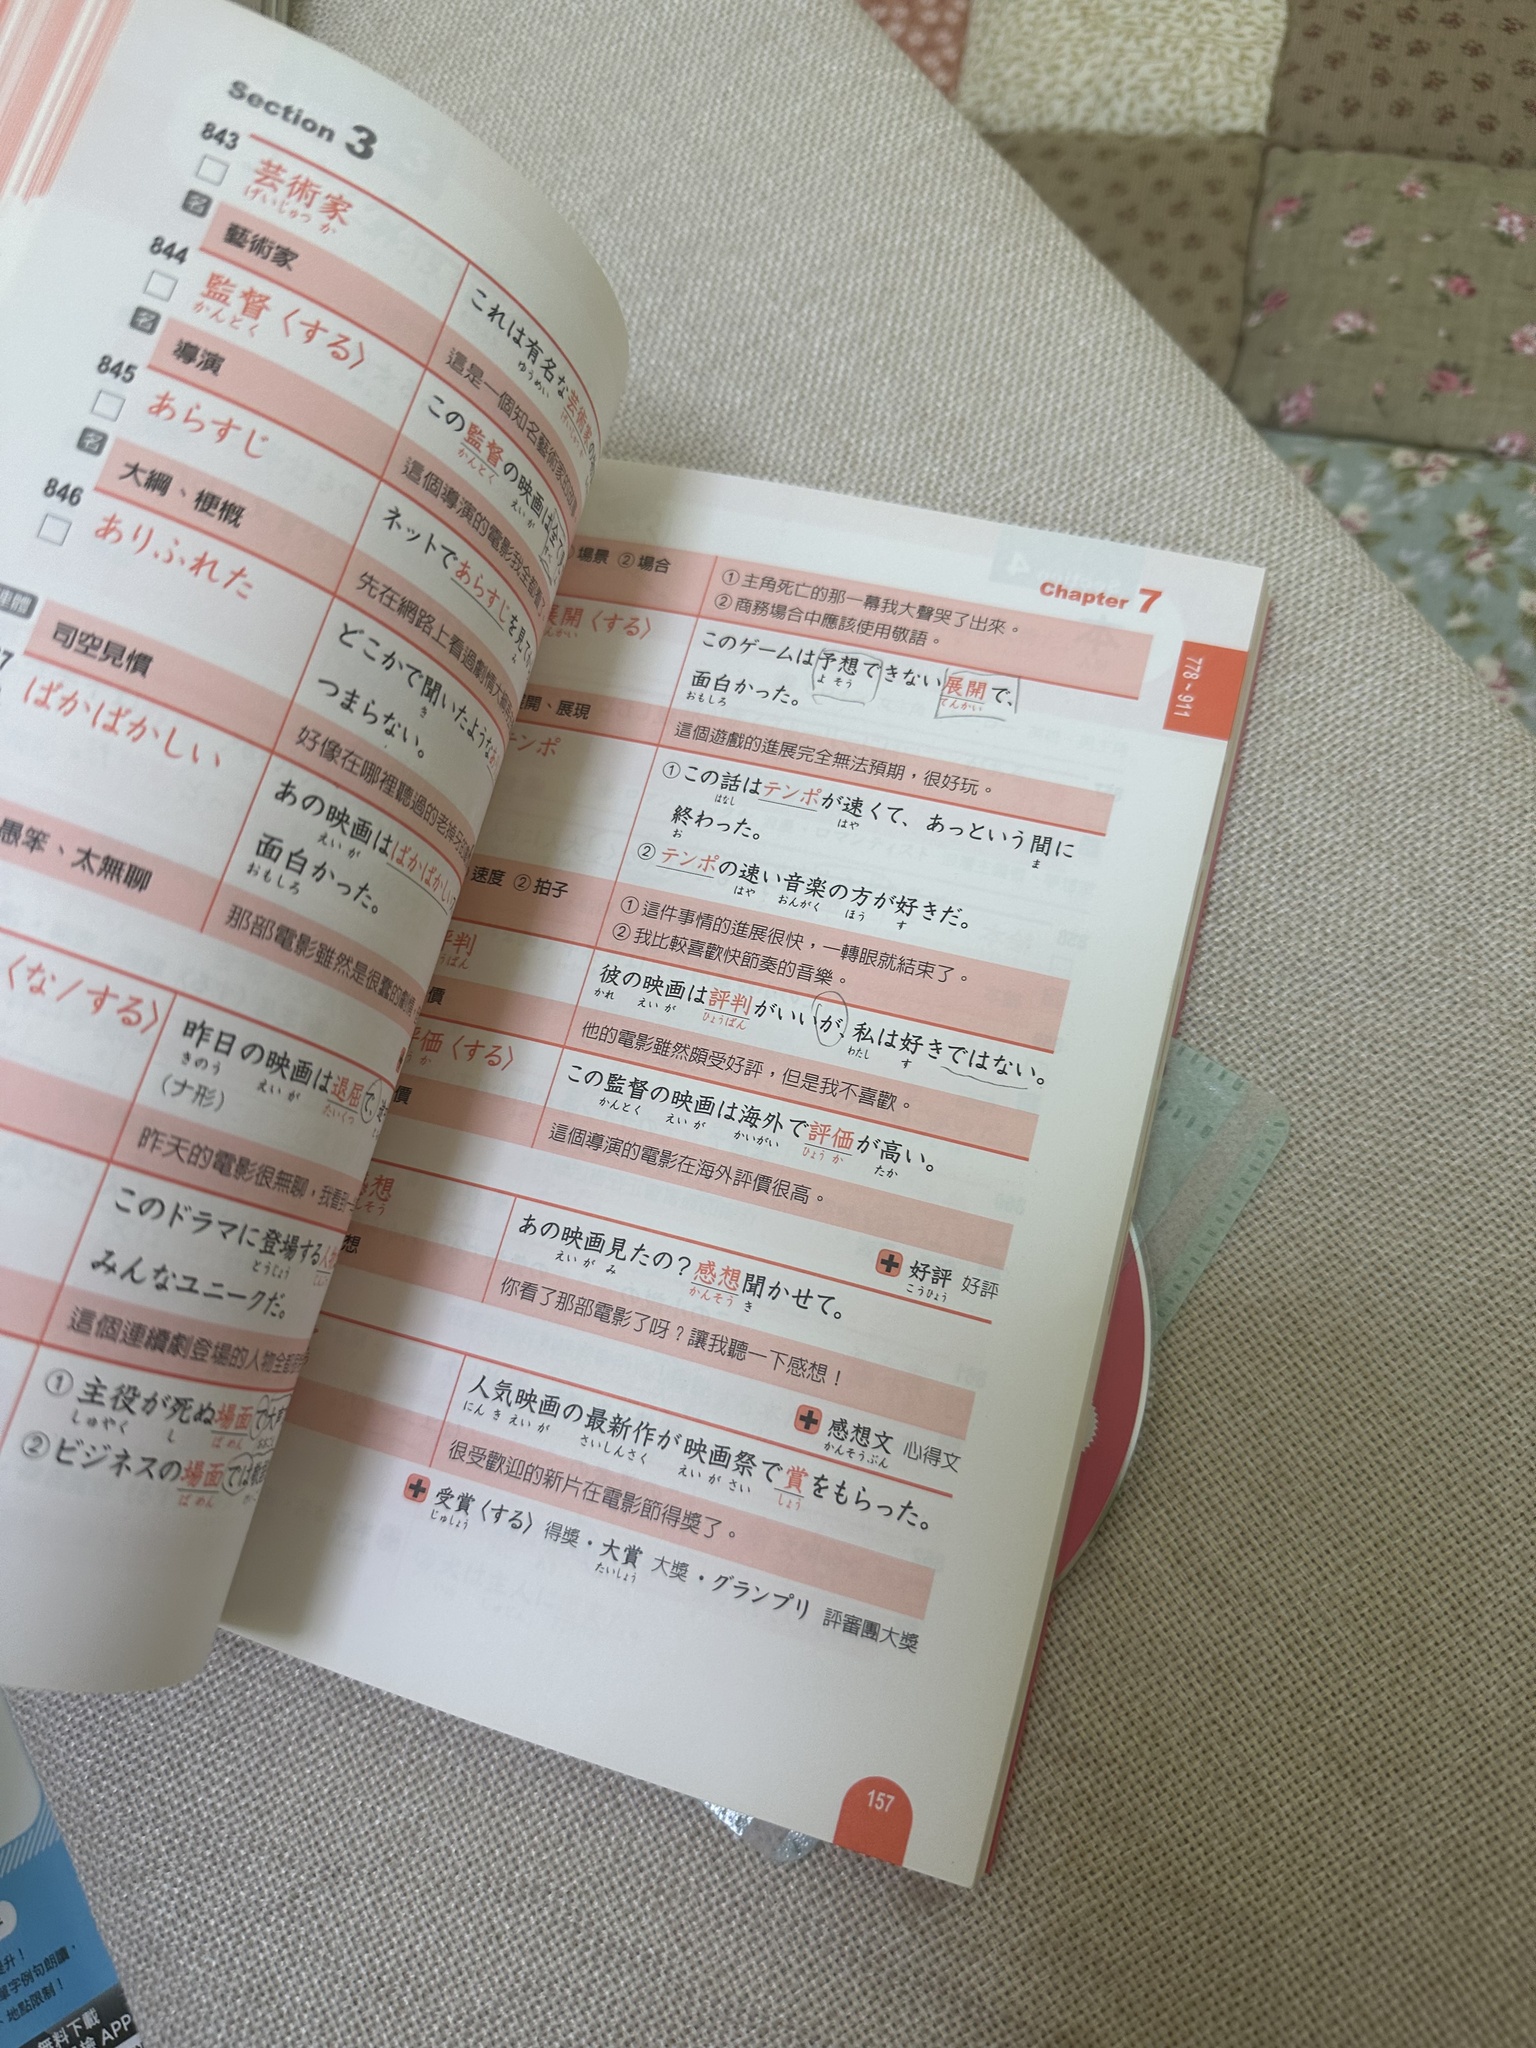 Section 3
843
芸術家
げいじゅつか
名
藝術家
これは有名な芸術家の
ゆうめい
這是一個知名藝術家的
844
監督〈する〉
かんとく
名
導演
この監督の映画は全て
かんとく えいが
這個導演的電影我全都看
845
あらすじ
名
大綱、梗概
ネットであらすじを見て
み
先在網路上看過劇情大綱
846
ありふれた
連體
司空見慣
どこかで聞いたような
き
つまらない。
好像在哪裡聽過的老掉牙
ばかばかしい
愚笨、太無聊
あの映画はばかばかしい
えいが
面白かった。
おもしろ
那部電影雖然是很蠢的劇情
〈な/する〉
昨日の映画は退屈で、
きのう えいが たいくつ
(ナ形)
昨天的電影很無聊,我看到一
このドラマに登場する人物
とうじょう
みんなユニークだ。
這個連續劇登場的人物全都
①主役が死ぬ場面で大
しゅやく し ばめん
②ビジネスの場面では敬
ばめん
Chapter 7
778~911
場景 ②場合
①主角死亡的那一幕我大聲哭了出來。
②商務場合中應該使用敬語。
展開〈する〉
このゲームは予想できない展開で、
よそう てんかい
面白かった。
おもしろ
開、展現
這個遊戲的進展完全無法預期,很好玩。
テンポ
①この話はテンポが速くて、あっという間に
はなし はや ま
終わった。
お
②テンポの速い音楽の方が好きだ。
はや おんがく ほう す
速度 ②拍子
①這件事情的進展很快,一轉眼就結束了。
②我比較喜歡快節奏的音樂。
評判
彼の映画は評判がいいが、私は好きではない。
かれ えいが ひょうばん わたし す
價
他的電影雖然頗受好評,但是我不喜歡。
評価〈する〉
この監督の映画は海外で評価が高い。
かんとく えいが かいがい ひょうか たか
價
這個導演的電影在海外評價很高。
好評 好評
こうひょう
感想
あの映画見たの?感想聞かせて。
えいがみ かんそうき
想
你看了那部電影了呀?讓我聽一下感想!
感想文 心得文
かんそうぶん
人気映画の最新作が映画祭で賞をもらった。
にんきえいが さいしんさく えいがさい しょう
很受歡迎的新片在電影節得獎了。
受賞〈する〉 得獎・大賞 大獎・グランプリ 評審團大獎
じゅしょう たいしょう
157
升!
單字例句朗讀,
地點限制!
無料下載
APP